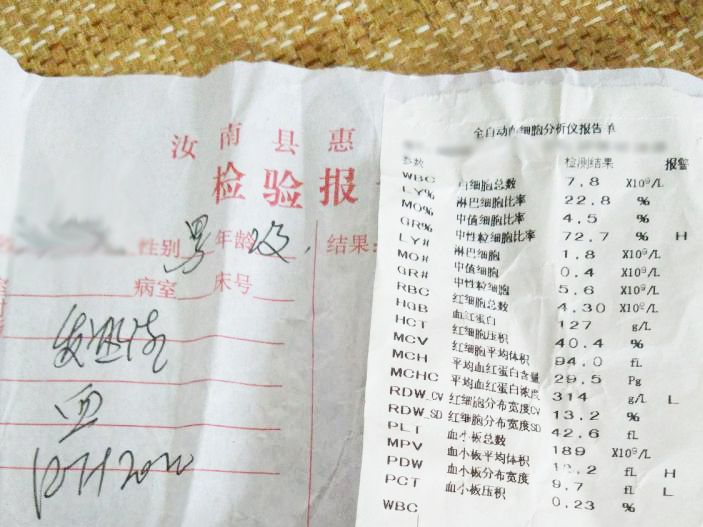 汝南县惠
检验报
性别 男 年龄 结果:
病室 床号
血
全自动血细胞分析仪报告单
参数 检测结果 报警
WBC 白细胞总数 7.8 X10⁹/L
LY% 淋巴细胞比率 22.8 %
MO% 中值细胞比率 4.5 %
GR% 中性粒细胞比率 72.7 % H
LY# 淋巴细胞 1.8 X10⁹/L
MO# 中值细胞 0.4 X10⁹/L
GR# 中性粒细胞 5.6 X10⁹/L
RBC 红细胞总数 4.30 X10¹²/L
HGB 血红蛋白 127 g/L
HCT 红细胞压积 40.4 %
MCV 红细胞平均体积 94.0 fL
MCH 平均血红蛋白含量 29.5 Pg
MCHC 平均血红蛋白浓度 314 g/L L
RDW_CV 红细胞分布宽度CV 13.2 %
RDW_SD 红细胞分布宽度SD 42.6 fL
PLT 血小板总数 189 X10⁹/L
MPV 血小板平均体积 fL H
PDW 血小板分布宽度 9.7 fL L
PCT 血小板压积 0.23 %
WBC